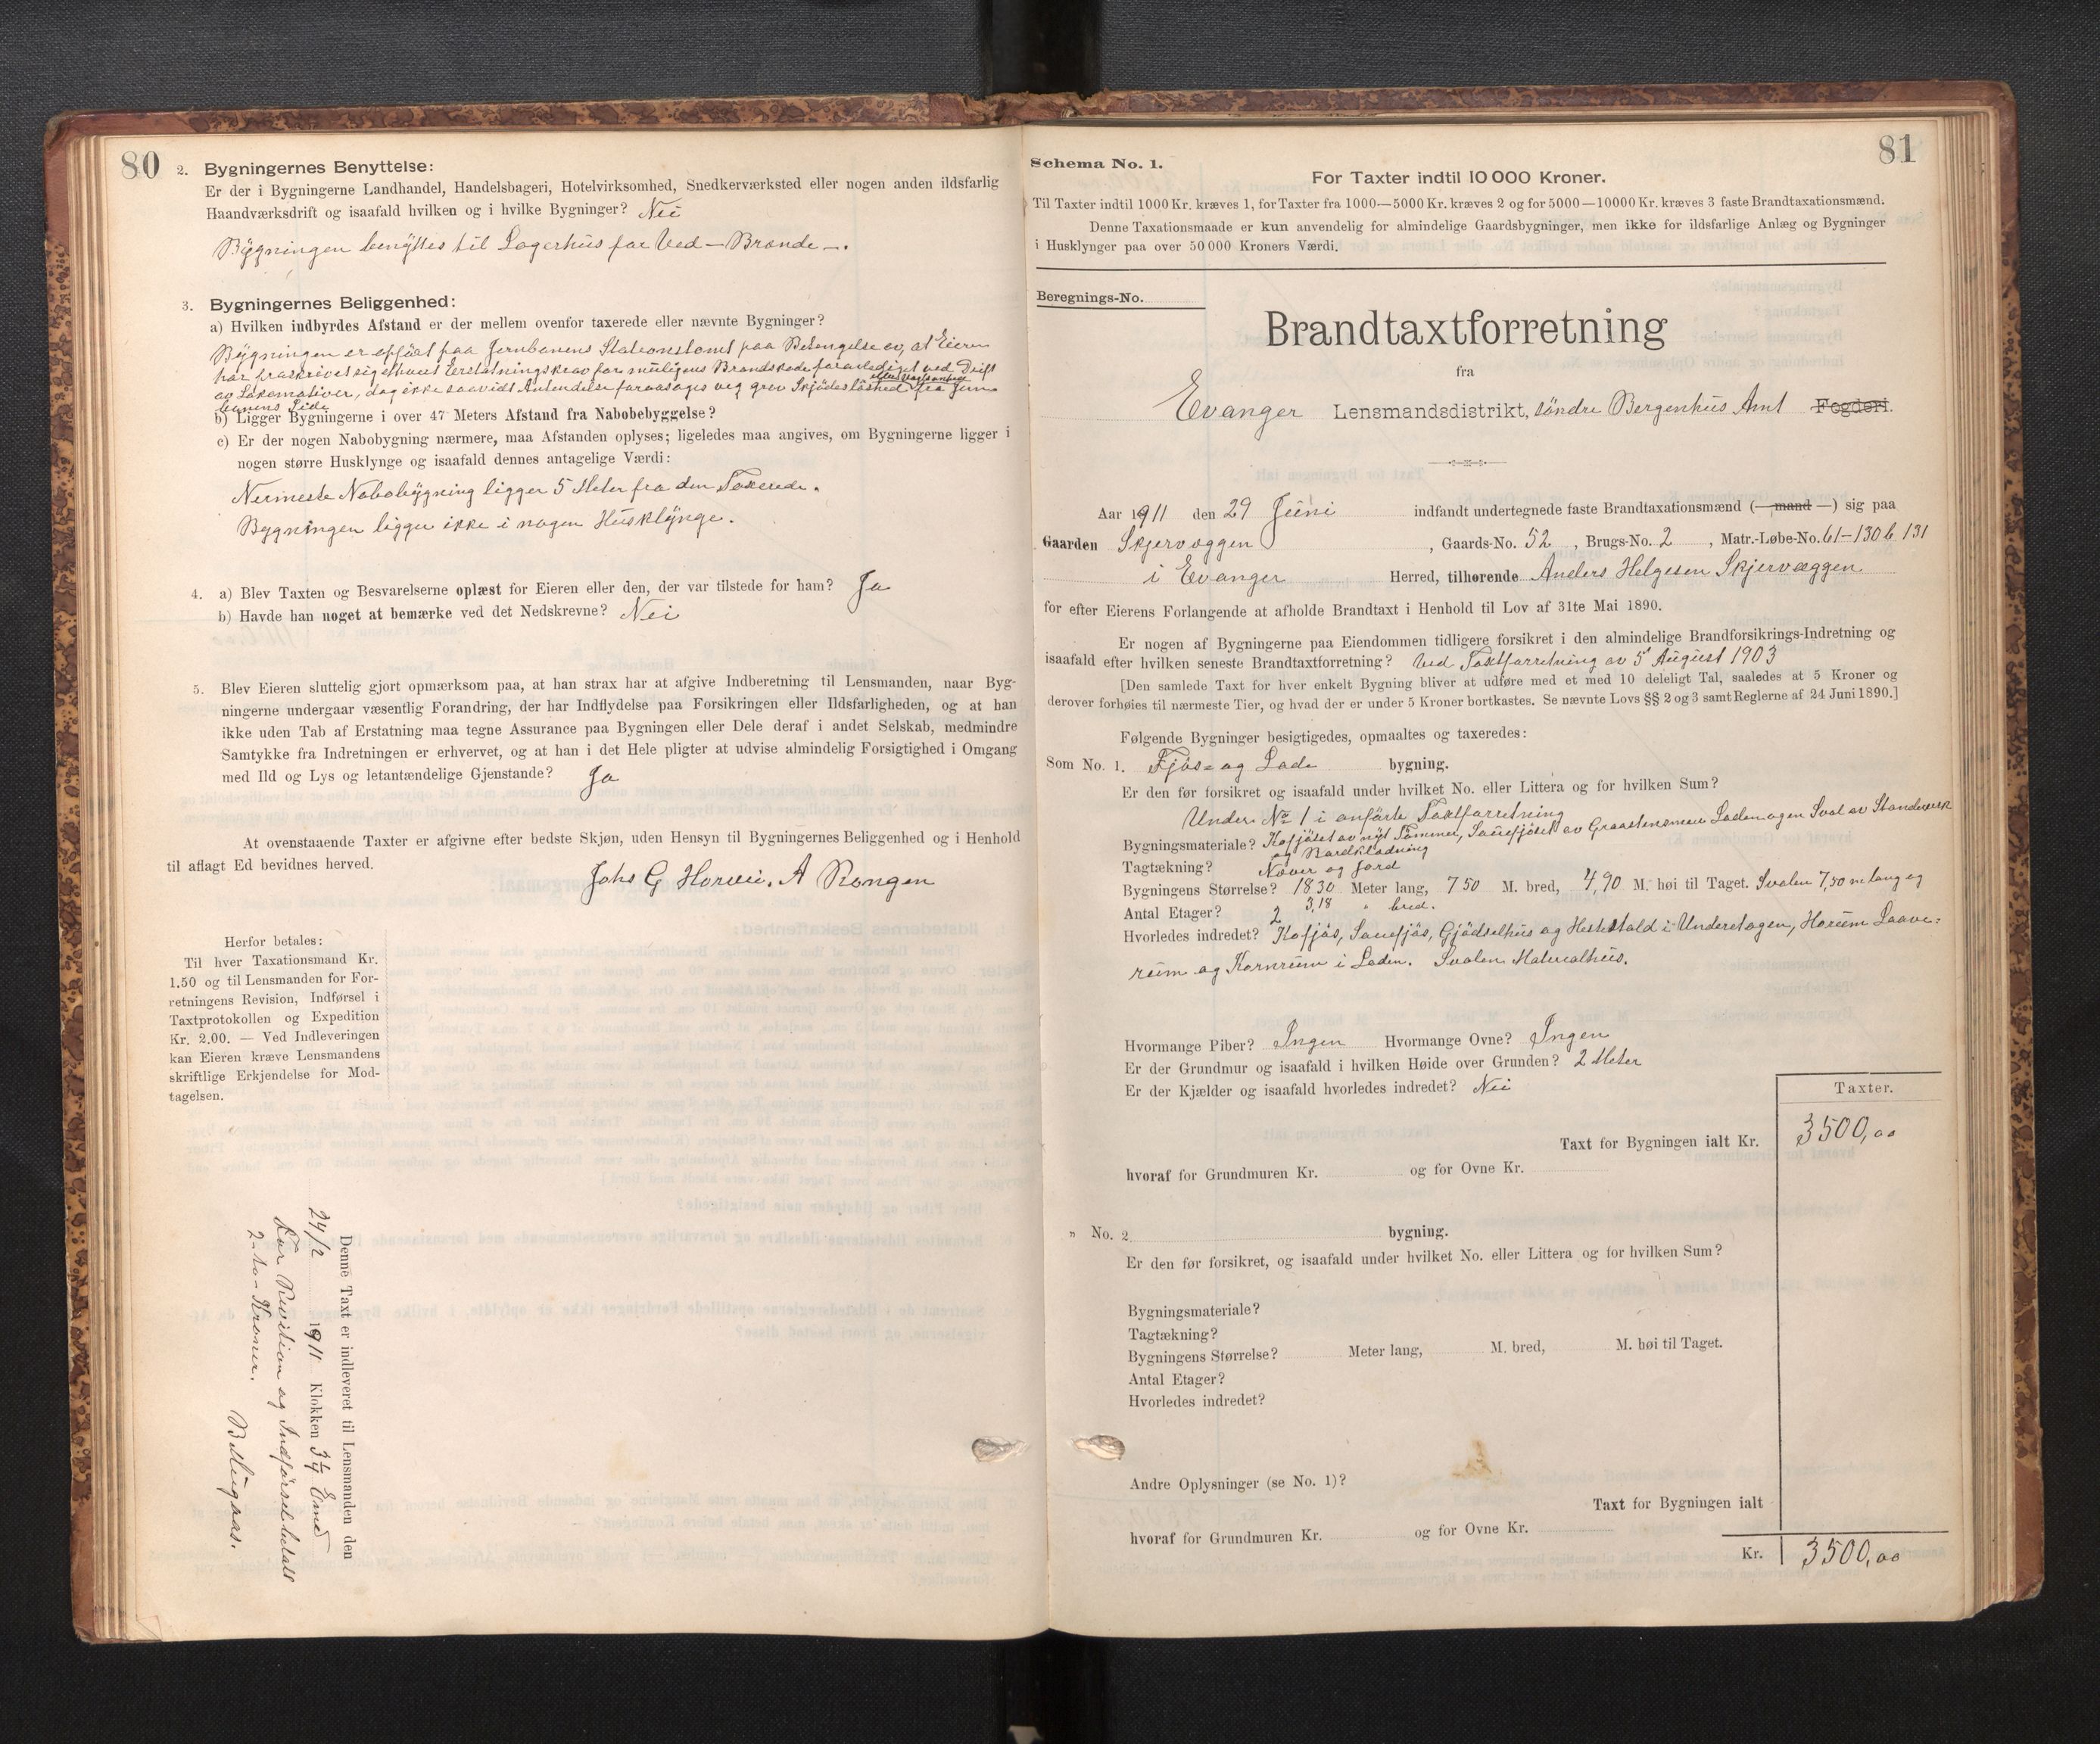 80
2. Bygningernes Benyttelse:
Er der i Bygningerne Landhandel, Handelsbageri, Hotelvirksomhed, Snedkerværksted eller nogen anden ildsfarlig
Haandværksdrift og isaafald hvilken og i hvilke Bygninger? Nei
Bygningen benyttes til Lagerhus for Ved – Brænde –.
3. Bygningernes Beliggenhed:
a) Hvilken indbyrdes Afstand er der mellem ovenfor taxerede eller nævnte Bygninger?
Bygningen er opført paa Jernbanens Stationstomt paa Betingelse av, at Eieren
har fraskrevet sig ethvert Erstatningskrav for muligens Brandskade foranlediget ved Drift
av Lokomotiver, dog ikke saavidt Antendelse foraarsages ved grov Skjødesløshed fra Jern-
banens Side
b) Ligger Bygningerne i over 47 Meters Afstand fra Nabobebyggelse?
c) Er der nogen Nabobygning nærmere, maa Afstanden oplyses; ligeledes maa angives, om Bygningerne ligger i
nogen større Husklynge og isaafald dennes antagelige Værdi:
Nermeste Nabobygning ligger 5 Meter fra den Taxerede.
Bygningen ligger ikke i nogen Husklynge.
4. a) Blev Taxten og Besvarelserne oplæst for Eieren eller den, der var tilstede for ham? Ja
b) Havde han noget at bemærke ved det Nedskrevne? Nei
5. Blev Eieren sluttelig gjort opmærksom paa, at han strax har at afgive Indberetning til Lensmanden, naar Byg-
ningerne undergaar væsentlig Forandring, der har Indflydelse paa Forsikringen eller Ildsfarligheden, og at han
ikke uden Tab af Erstatning maa tegne Assurance paa Bygningen eller Dele deraf i andet Selskab, medmindre
Samtykke fra Indretningen er erhvervet, og at han i det Hele pligter at udvise almindelig Forsigtighed i Omgang
med Ild og Lys og letantændelige Gjenstande? Ja
At ovenstaaende Taxter er afgivne efter bedste Skjøn, uden Hensyn til Bygningernes Beliggenhed og i Henhold
til aflagt Ed bevidnes herved.
Johs G Horvei. A Rongen
Herfor betales:
Til hver Taxationsmand Kr.
1.50 og til Lensmanden for For-
retningens Revision, Indførsel i
Taxtprotokollen og Expedition
Kr. 2.00. — Ved Indleveringen
kan Eieren kræve Lensmandens
skriftlige Erkjendelse for Mod-
tagelsen.
Denne Taxt er indleveret til Lensmanden den
24/2 1911 Klokken 3¼ Emd
For Revision og Indførsel betalt
2-to- Kroner.
81
Schema No. 1.
For Taxter indtil 10 000 Kroner.
Til Taxter indtil 1000 Kr. kræves 1, for Taxter fra 1000—5000 Kr. kræves 2 og for 5000—10000 Kr. kræves 3 faste Brandtaxationsmænd.
Denne Taxationsmaade er kun anvendelig for almindelige Gaardsbygninger, men ikke for ildsfarlige Anlæg og Bygninger
i Husklynger paa over 50 000 Kroners Værdi.
Beregnings-No.
Brandtaxtforretning
fra
Evanger Lensmandsdistrikt, søndre Bergenhus Amt Fogderi.
Aar 1911 den 29 Juni indfandt undertegnede faste Brandtaxationsmænd (— mand —) sig paa
Gaarden Skjervæggen, Gaards-No. 52, Brugs-No. 2, Matr.-Løbe-No. 61-130b 131
i Evanger Herred, tilhørende Anders Helgesen Skjervæggen
for efter Eierens Forlangende at afholde Brandtaxt i Henhold til Lov af 31te Mai 1890.
Er nogen af Bygningerne paa Eiendommen tidligere forsikret i den almindelige Brandforsikrings-Indretning og
isaafald efter hvilken seneste Brandtaxtforretning? Ved Taxtforretning av 5' August 1903
[Den samlede Taxt for hver enkelt Bygning bliver at udføre med et med 10 deleligt Tal, saaledes at 5 Kroner og
derover forhøies til nærmeste Tier, og hvad der er under 5 Kroner bortkastes. Se nævnte Lovs §§ 2 og 3 samt Reglerne af 24 Juni 1890.]
Følgende Bygninger besigtigedes, opmaaltes og taxeredes:
Som No. 1. Fjøs- og Lade bygning.
Er den før forsikret og isaafald under hvilket No. eller Littera og for hvilken Sum?
Under No 1 i anførte Taxtforretning
Bygningsmateriale? Kofjøset av nyt Tømmer, Sauefjøset av Graasteinsmur Laden og en Sval av Standverk
og Bordklædning
Tagtækning? Næver og Jord
Bygningens Størrelse? 18.30 Meter lang, 7 50 M. bred, 4,90 M. høi til Taget. Svalen 7,50 m lang og
3,18 " bred.
Antal Etager? 2
Hvorledes indredet? Kofjøs, Sauefjøs, Gjødselhus og Hestestald i Underetagen, Høirum Laave-
rum og Kornrum i Laden. Svalen Materialhus.
Hvormange Piber? Ingen Hvormange Ovne? Ingen
Er der Grundmur og isaafald i hvilken Høide over Grunden? 2 Meter
Er der Kjælder og isaafald hvorledes indredet? Nei
Taxter.
Taxt for Bygningen ialt Kr. 3500,00
hvoraf for Grundmuren Kr. og for Ovne Kr.
" No. 2 bygning.
Er den før forsikret, og isaafald under hvilket No. eller Littera og for hvilken Sum?
Bygningsmateriale?
Tagtækning?
Bygningens Størrelse? Meter lang, M. bred, M. høi til Taget.
Antal Etager?
Hvorledes indredet?
Andre Oplysninger (se No. 1)?
Taxt for Bygningen ialt
hvoraf for Grundmuren Kr. og for Ovne Kr.
Kr. 3500,00